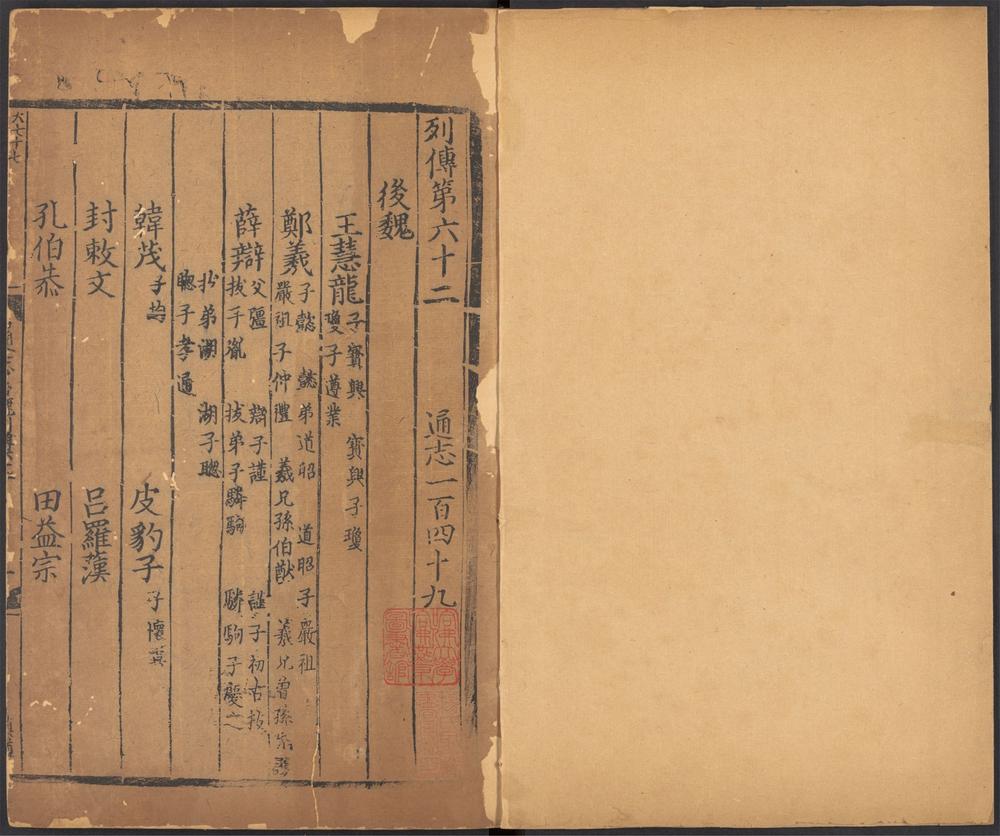 列傳第六十二 通志一百四十九
後魏
王慧龍 子寶興 寶興子瓊
瓊子遵業
鄭羲 子懿 懿弟道昭 道昭子嚴祖
嚴祖子仲禮 羲兄孫伯猷 羲兄曾孫
薛辯 父彊 辯子謹 謹子初古拔
拔子胤 拔弟子驎駒 驎駒子慶之
弟湖 湖子聰
聰子孝通
韓茂 子均 皮豹子 子懷
封敕文 呂羅漢
孔伯恭 田益宗